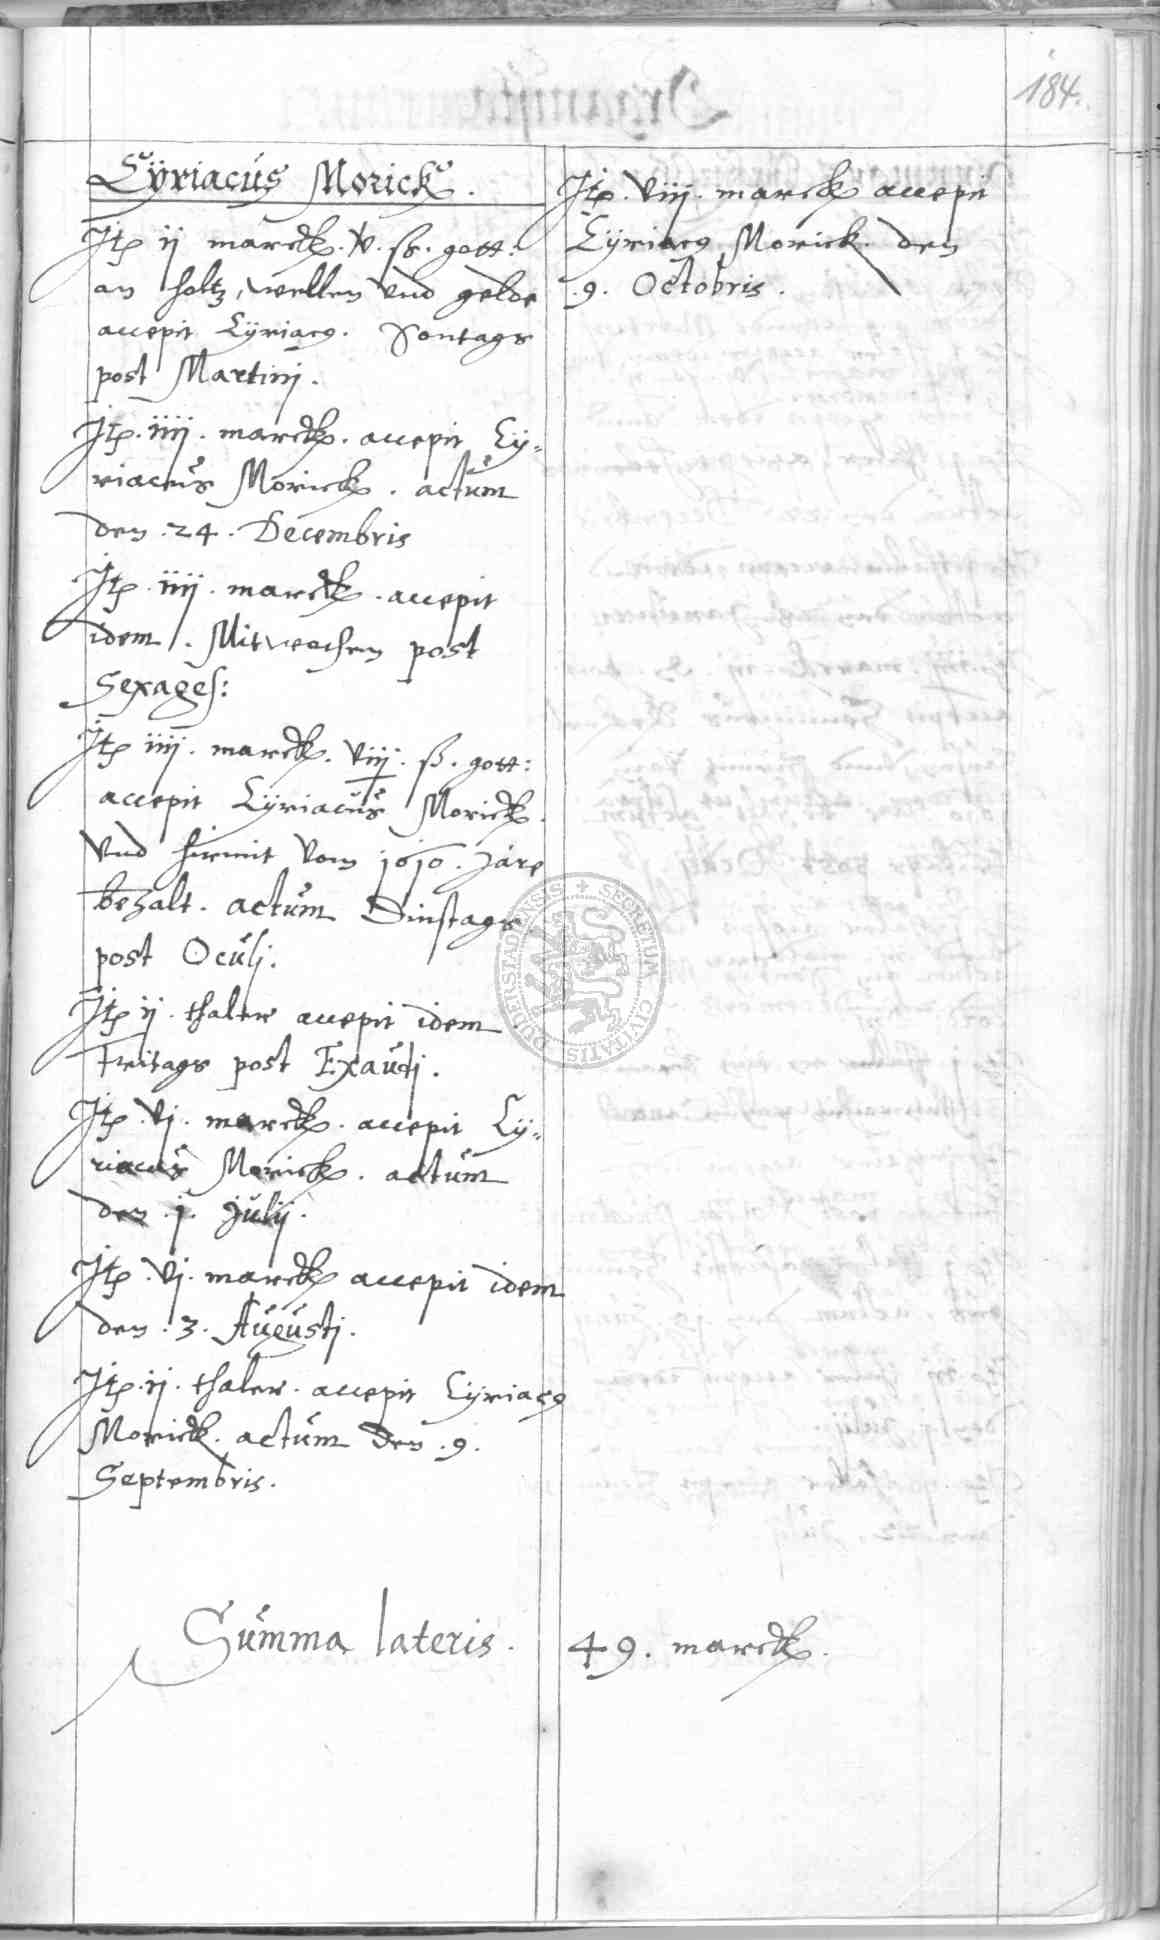 184.
Cÿriacus Morick.
Jtē ij marck. v. ß. gott:
an holtz, wellen vnd gelde
accepit Cÿriacꝰ. Sontags
post Martinj.
Jtē. iiij. marck. accepit Cÿ„
riacus Morick. actum
den. 24. Decembris
Jtē. iiij. marck. accepit
idem. Mitwochen post
Sexages:
Jtē iiij. marck. viij. ß. gott:
accepit Cÿriacus Morick.
vnd hirmit vom 1610. Jare
bezalt. actum Dinstags
post Oculj.
Jtē ij. thaler accepit idem
Freitags post Exaudj.
Jtē. vj. marck. accepit Cÿ„
riacus Morick. actum
den. j. Julij.
Jtē. vj. marck accepit idem
den. 3. Augustj.
Jtē. ij. thaler. accepit Cÿriacꝰ
Morick. actum den. 9.
Septembris.
Jtē. viij. marck accepit
Cÿriacꝰ Morick. den
.9. Octobris.
Summa lateris. 49. marck.
SECRETUM CIVITATIS DUDERSTADENSIS